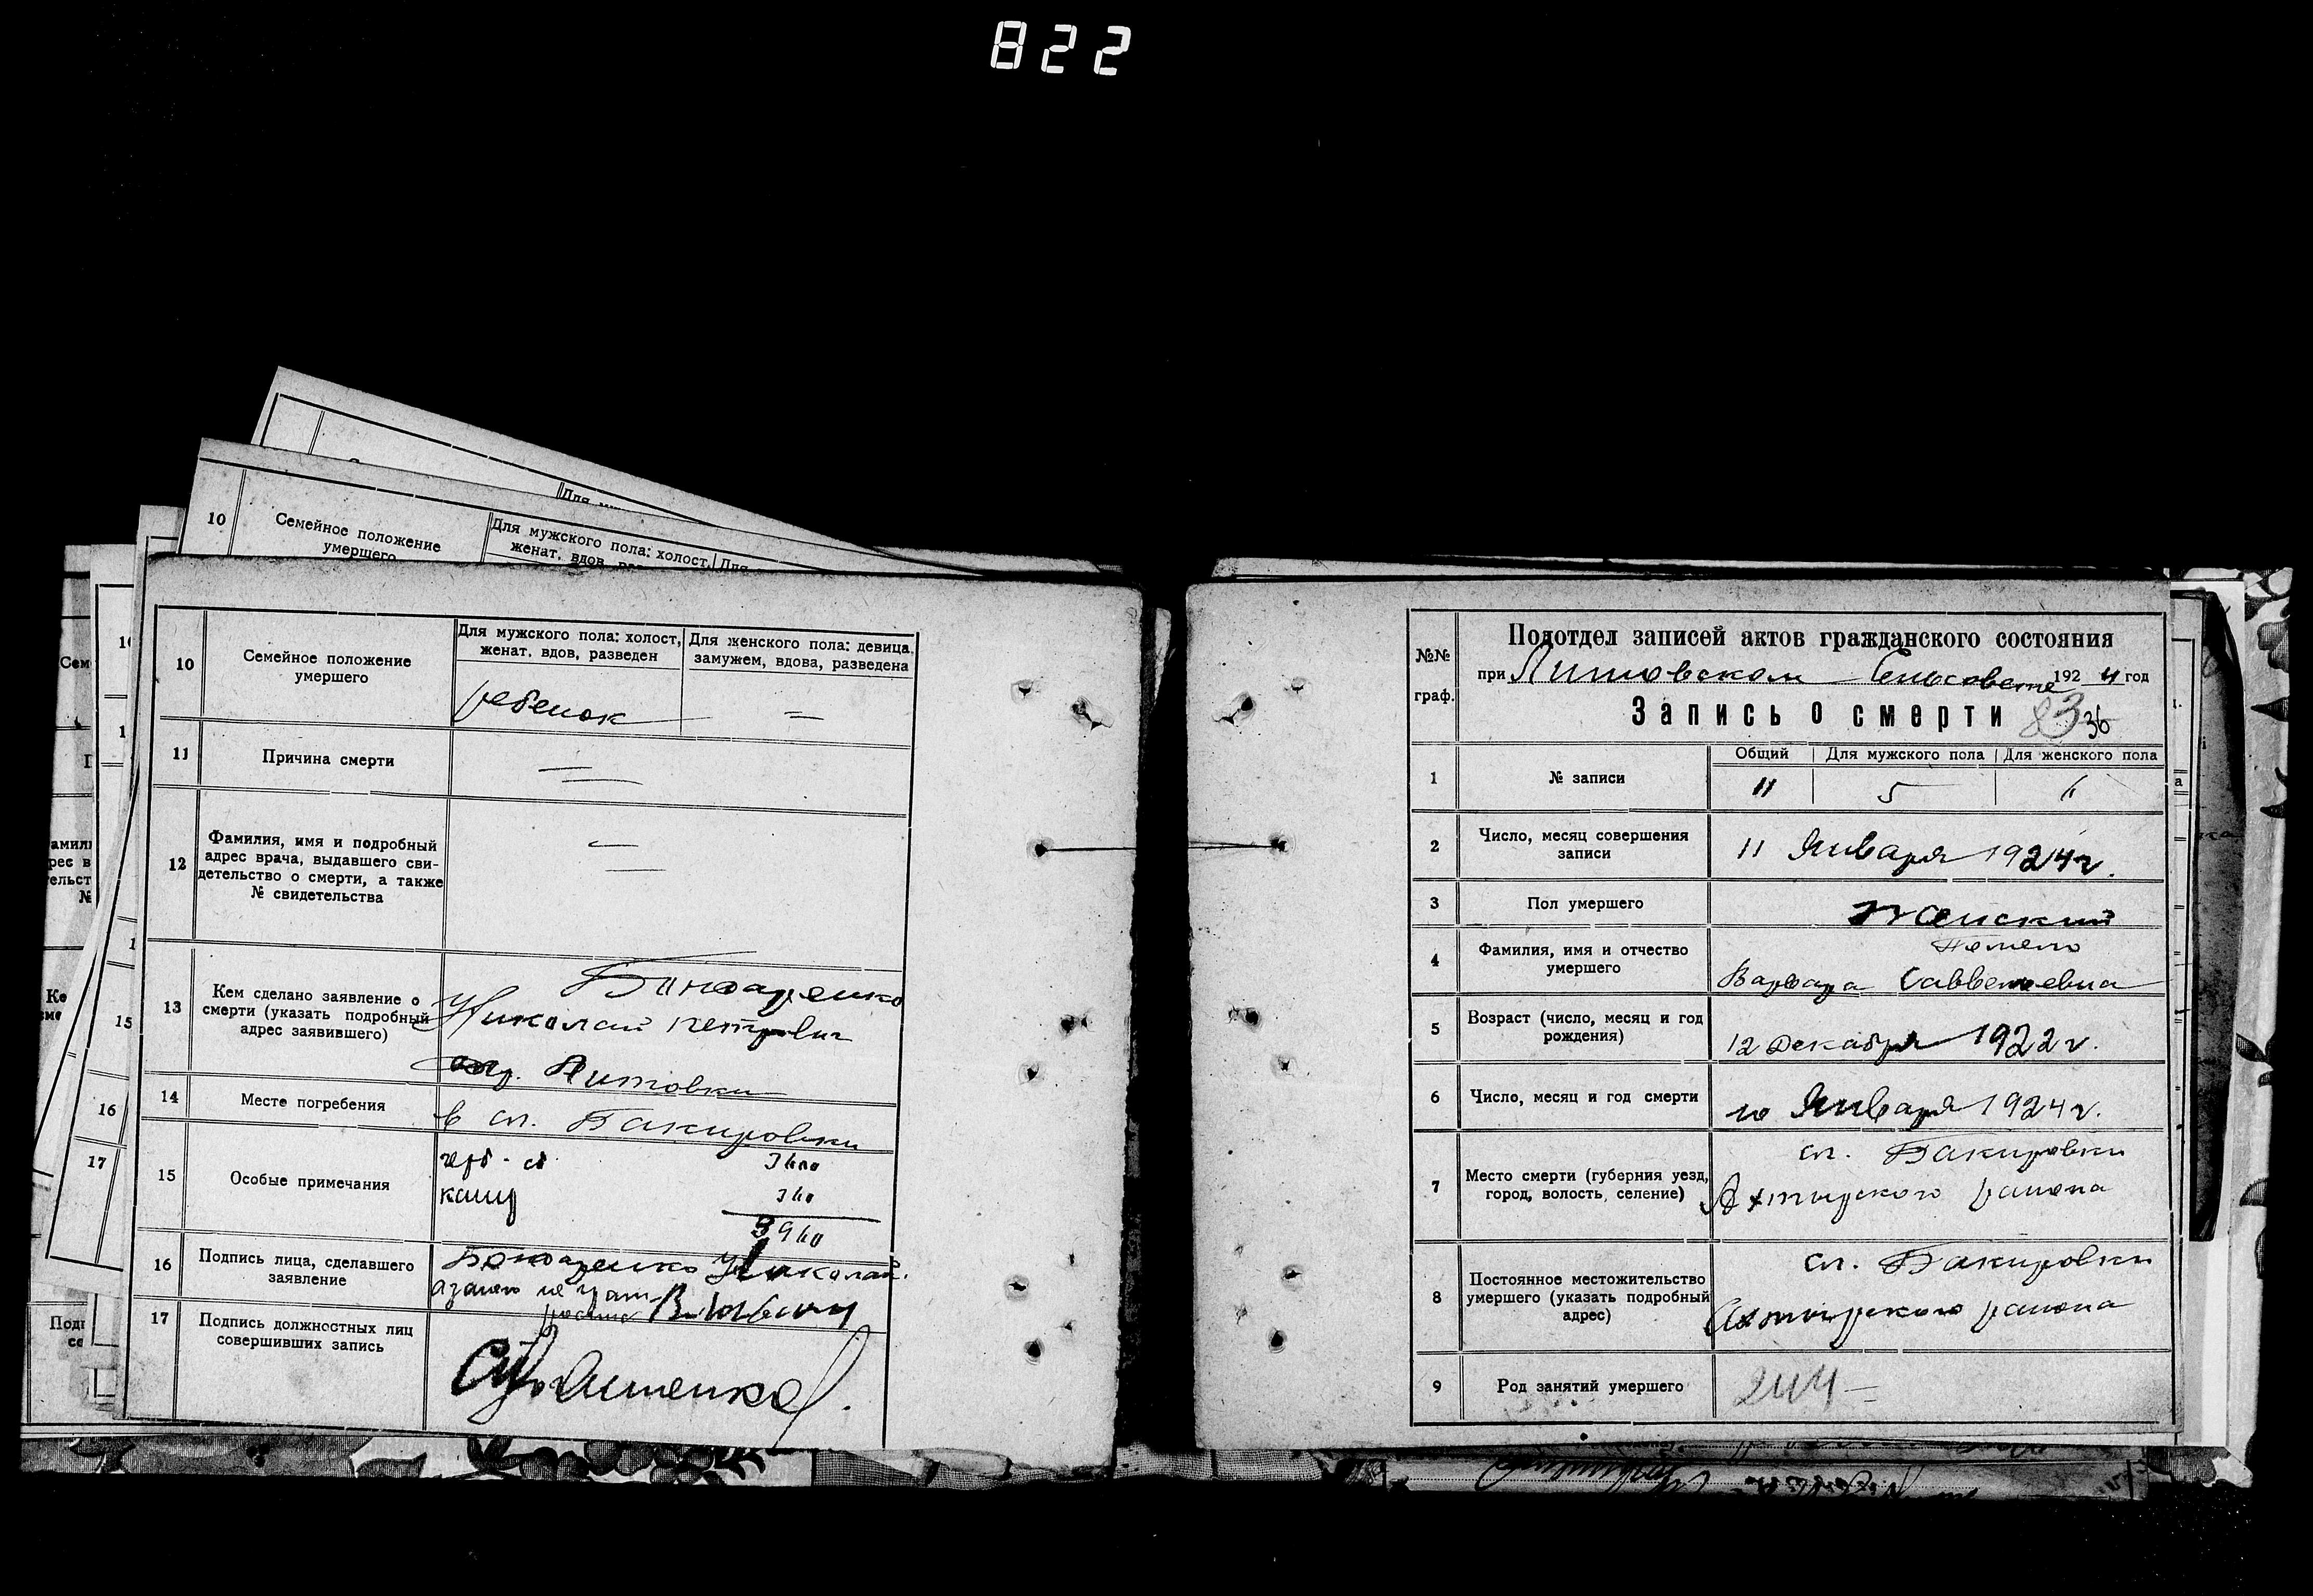 822
10
Семейное положение
умершего
Для мужского пола: холост,
женат, вдов,
Для
10
Семейное положение
умершего
Для мужского пола: холост,
женат, вдов, разведен
Для женского пола: девица,
замужем, вдова, разведена
ребенок
—
11
Причина смерти
12
Фамилия, имя и подробный
адрес врача, выдавшего сви-
детельство о смерти, а также
№ свидетельства
13
Кем сделано заявление о
смерти (указать подробный
адрес заявившего)
Бондаренко
Николай Петрович
Литовки
14
Место погребения
в сл. Бакировки
15
Особые примечания
герб. сб.
канц
16
Подпись лица, сделавшего
заявление
Бондаренко Николай
17
Подпись должностных лиц
совершивших запись
15
16
17
№№
граф.
Подотдел записей актов гражданского состояния
при Литовском Сельсовете 1924 год
Запись о смерти 83 36
1
№ записи
Общий
Для мужского пола
Для женского пола
11
5
6
2
Число, месяц совершения
записи
11 Января 1924 г.
3
Пол умершего
женский
4
Фамилия, имя и отчество
умершего
Варвара Савветеевна
5
Возраст (число, месяц и год
рождения)
12 Декабря 1922 г.
6
Число, месяц и год смерти
10 Января 1924 г.
7
Место смерти (губерния уезд,
город, волость, селение)
сл. Бакировки
Ахтырского района
8
Постоянное местожительство
умершего (указать подробный
адрес)
сл. Бакировки
Ахтырского района
9
Род занятий умершего
244